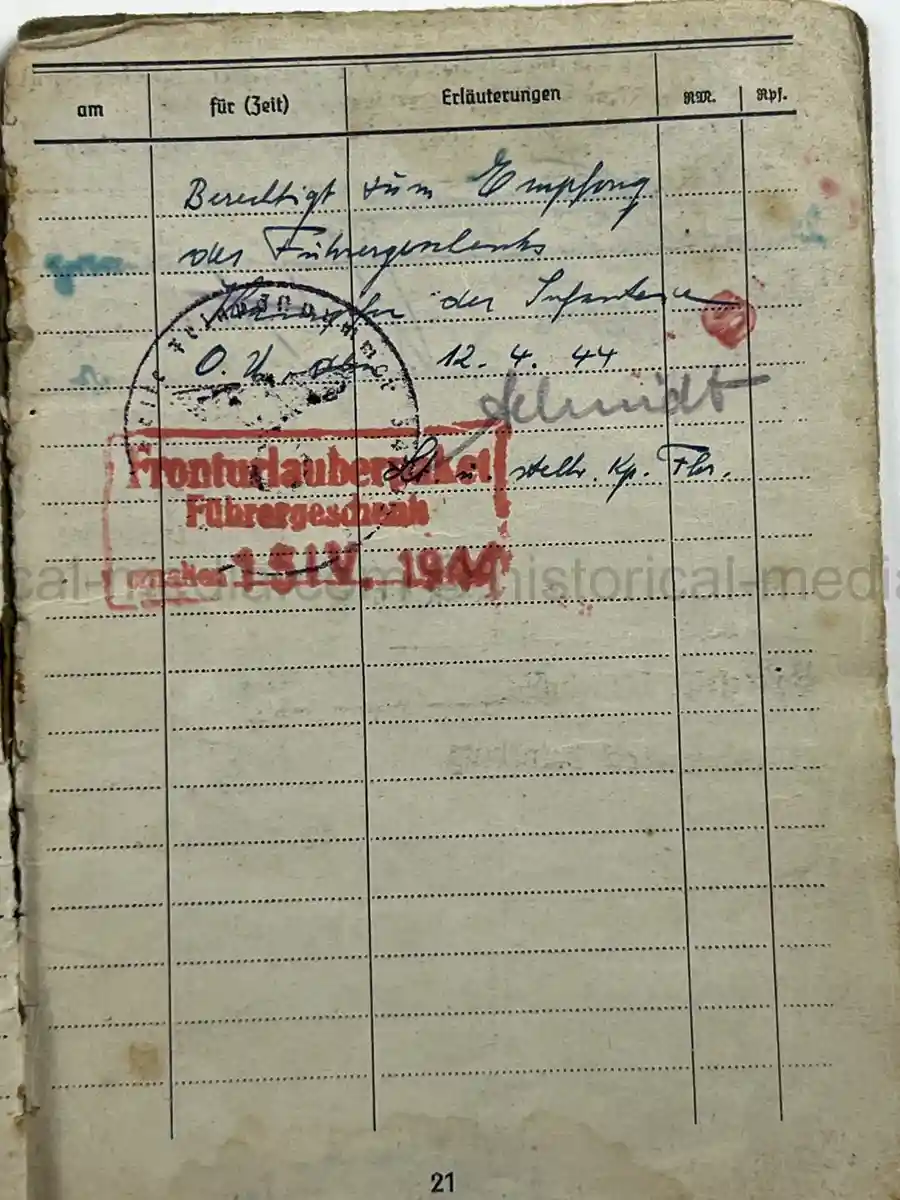 am für (Zeit) Erläuterungen RM. Rpf.
Berechtigt zum Empfang
des Führergeschenks
der Infanterie
O. U., den 12. 4. 44
Schmidt
Lt u stellv. Kp. Fhr.
Fronturlauberpaket
Führergeschenk
erhalten 15 IV. 1944
historical-media
21